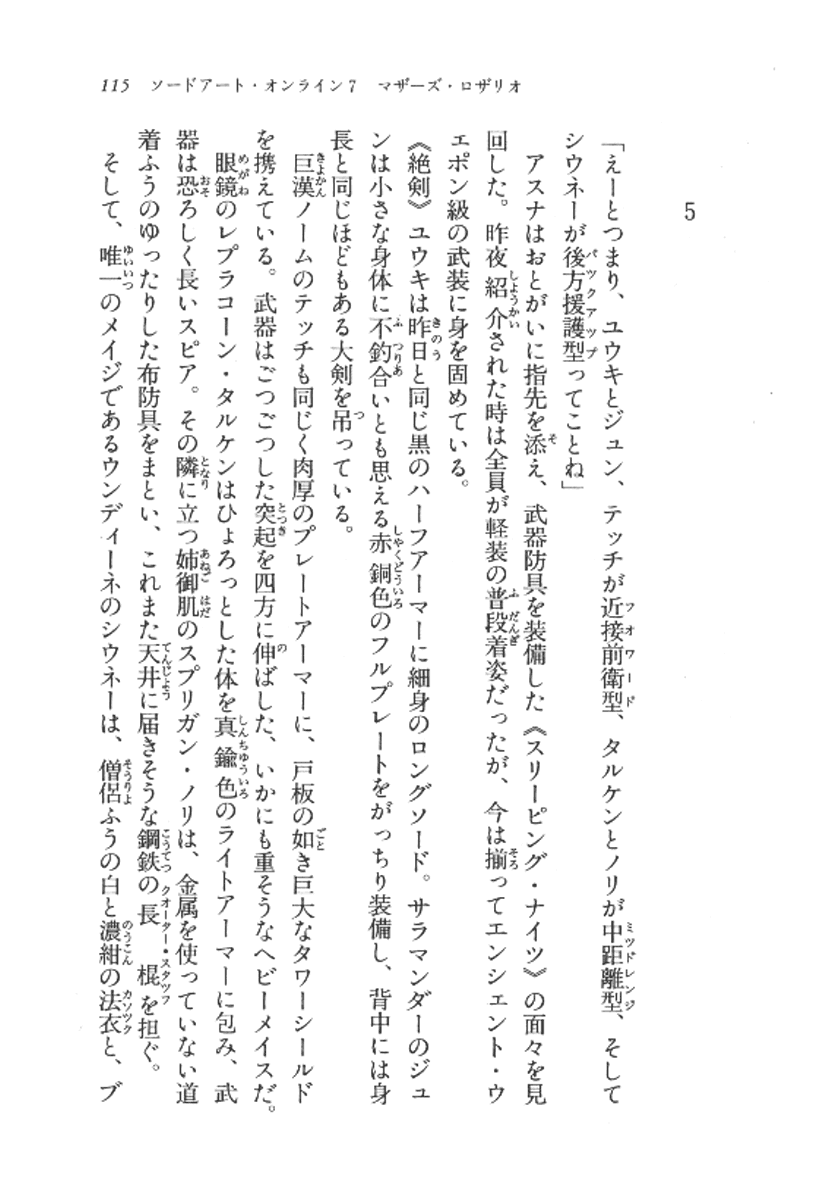 115 ソードアート・オンライン7 マザーズ・ロザリオ
5
「えーとつまり、ユウキとジュン、テッチが近接前衛型、タルケンとノリが中距離型、そして
シウネーが後方援護型ってことね」
アスナはおとがいに指先を添え、武器防具を装備した《スリーピング・ナイツ》の面々を見
回した。昨夜紹介された時は全員が軽装の普段着姿だったが、今は揃ってエンシェント・ウ
ェポン級の武装に身を固めている。
《絶剣》ユウキは昨日と同じ黒のハーフアーマーに細身のロングソード。サラマンダーのジュ
ンは小さな身体に不釣合いとも思える赤銅色のフルプレートをがっちり装備し、背中には身
長と同じほどもある大剣を吊っている。
巨漢ノームのテッチも同じく肉厚のプレートアーマーに、戸板の如き巨大なタワーシールド
を携えている。武器はごつごつした突起を四方に伸ばした、いかにも重そうなヘビーメイスだ。
眼鏡のレプラコーン・タルケンはひょろっとした体を真鍮色のライトアーマーに包み、武
器は恐ろしく長いスピア。その隣に立つ姉御肌のスプリガン・ノリは、金属を使っていない道
着ふうのゆったりした布防具をまとい、これまた天井に届きそうな鋼鉄の長棍を担ぐ。
そして、唯一のメイジであるウンディーネのシウネーは、僧侶ふうの白と濃紺の法衣と、ブ